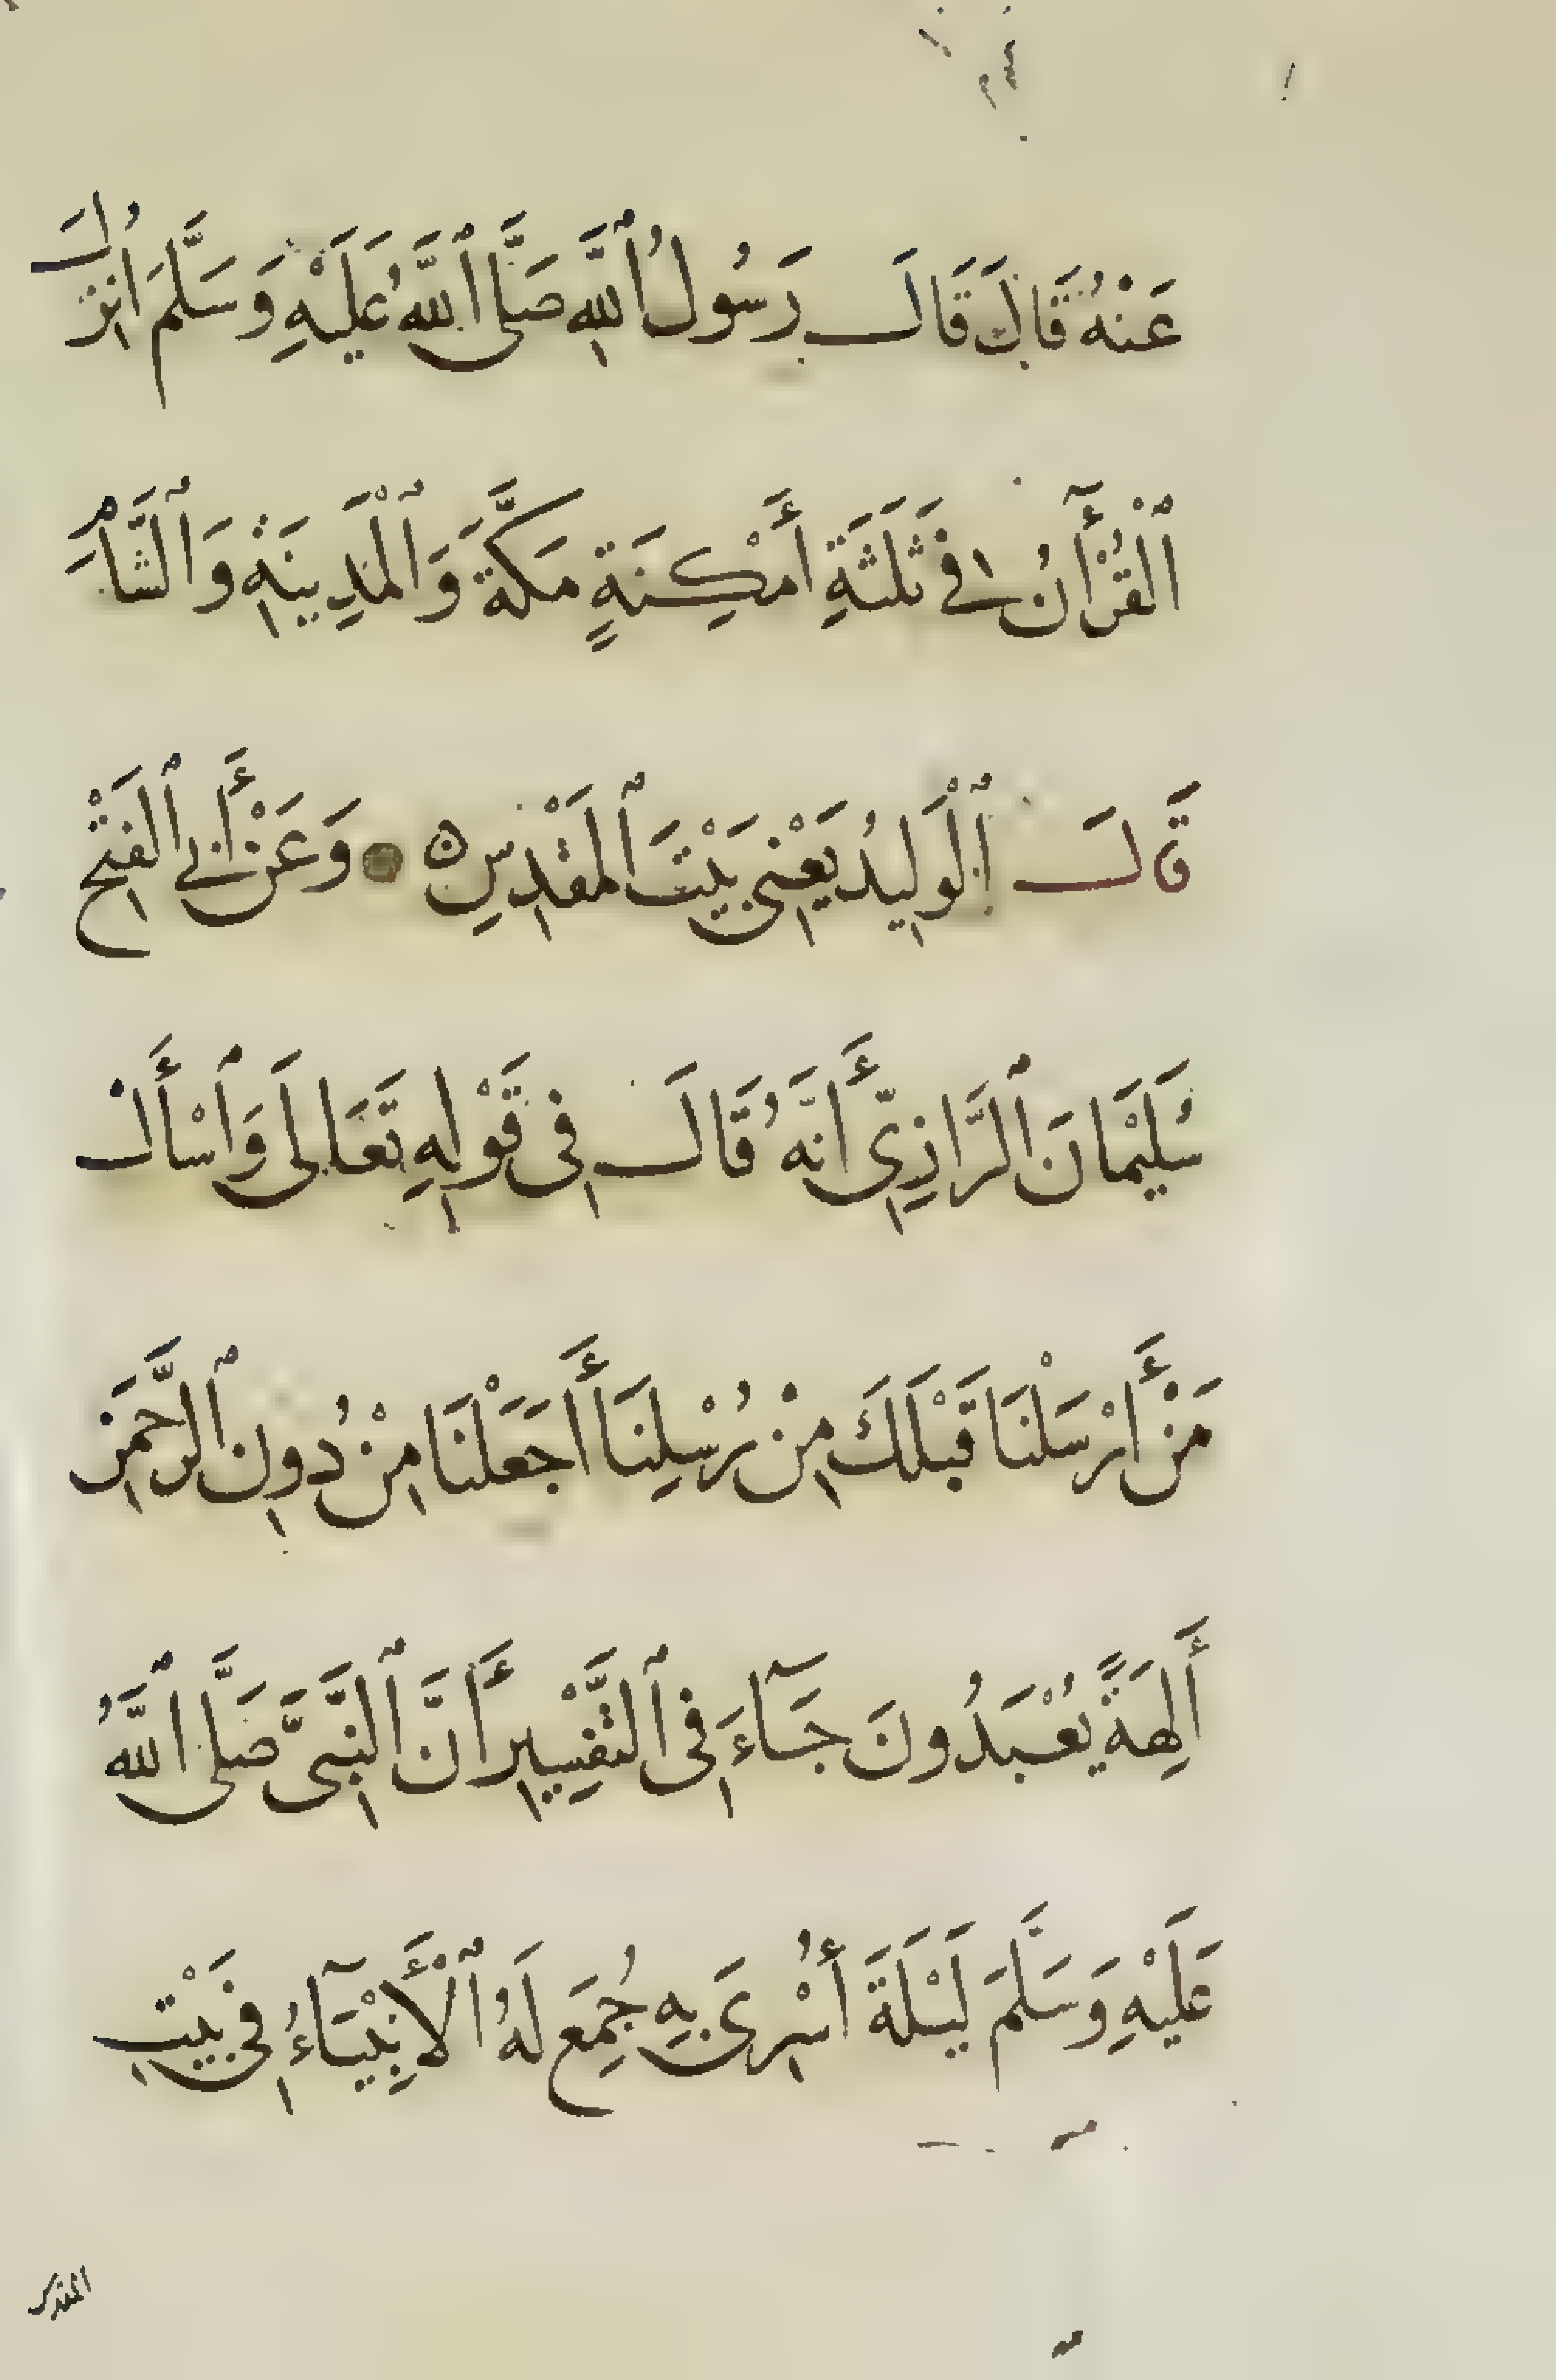 عَنْهُ قَالَ قَالَ رَسُولُ ٱللَّهِ صَلَّى ٱللَّهُ عَلَيْهِ وَسَلَّمَ أُنْزِلَ
ٱلْقُرْآنُ فِي ثَلَثَةِ أَمْكِنَةٍ مَكَّةَ وَٱلْمَدِينَةِ وَٱلشَّأْمِ
قَالَ ٱلْوَلِيدُ يَعْنِي بَيْتَ ٱلْمَقْدِسِ ه وَعَنْ أَبِي ٱلْفَتْحِ
سُلَيْمَانَ ٱلرَّازِيِّ أَنَّهُ قَالَ فِي قَوْلِهِ تَعَالَى وَٱسْأَلْ
مَنْ أَرْسَلْنَا قَبْلَكَ مِنْ رُسُلِنَا أَجَعَلْنَا مِنْ دُونِ ٱلرَّحْمَنِ
أَلِهَةً يُعْبَدُونَ جَآءَ فِي ٱلتَّفْسِيرِ أَنَّ ٱلنَّبِيَّ صَلَّى ٱللَّهُ
عَلَيْهِ وَسَلَّمَ لَيْلَةَ أُسْرِيَ بِهِ جُمِعَ لَهُ ٱلْأَنْبِيَآءُ فِي بَيْتِ
المقدس